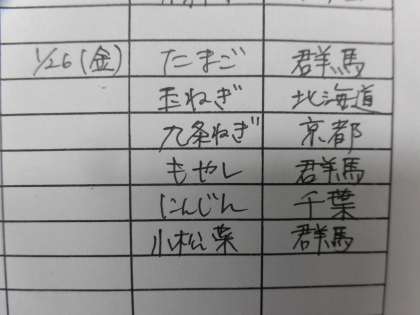 1/26(金) たまご 群馬
玉ねぎ 北海道
九条ねぎ 京都
もやし 群馬
にんじん 千葉
小松菜 群馬